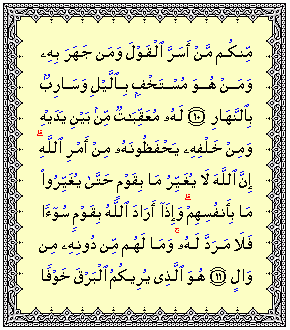 مِّنكُم مَّنْ أَسَرَّ ٱلْقَوْلَ وَمَن جَهَرَ بِهِۦ
وَمَنْ هُوَ مُسْتَخْفٍۭ بِٱلَّيْلِ وَسَارِبٌۢ
بِٱلنَّهَارِ ۝١٠ لَهُۥ مُعَقِّبَـٰتٌ مِّنۢ بَيْنِ يَدَيْهِ
وَمِنْ خَلْفِهِۦ يَحْفَظُونَهُۥ مِنْ أَمْرِ ٱللَّهِ ۗ
إِنَّ ٱللَّهَ لَا يُغَيِّرُ مَا بِقَوْمٍ حَتَّىٰ يُغَيِّرُوا۟
مَا بِأَنفُسِهِمْ ۗ وَإِذَآ أَرَادَ ٱللَّهُ بِقَوْمٍ سُوٓءًا
فَلَا مَرَدَّ لَهُۥ ۚ وَمَا لَهُم مِّن دُونِهِۦ مِن
وَالٍ ۝١١ هُوَ ٱلَّذِى يُرِيكُمُ ٱلْبَرْقَ خَوْفًا